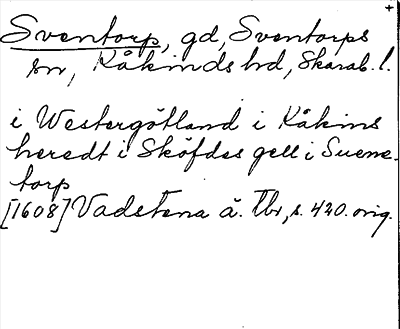 +
Sventorp, gd, Sventorps
sn, Kåkinds hd, Skarab. l.
i Westergötland i Kåkins
heredt i Sköfdes gell i Suene-
torp
[1608] Vadstena ä. Tbr, s. 420. orig.